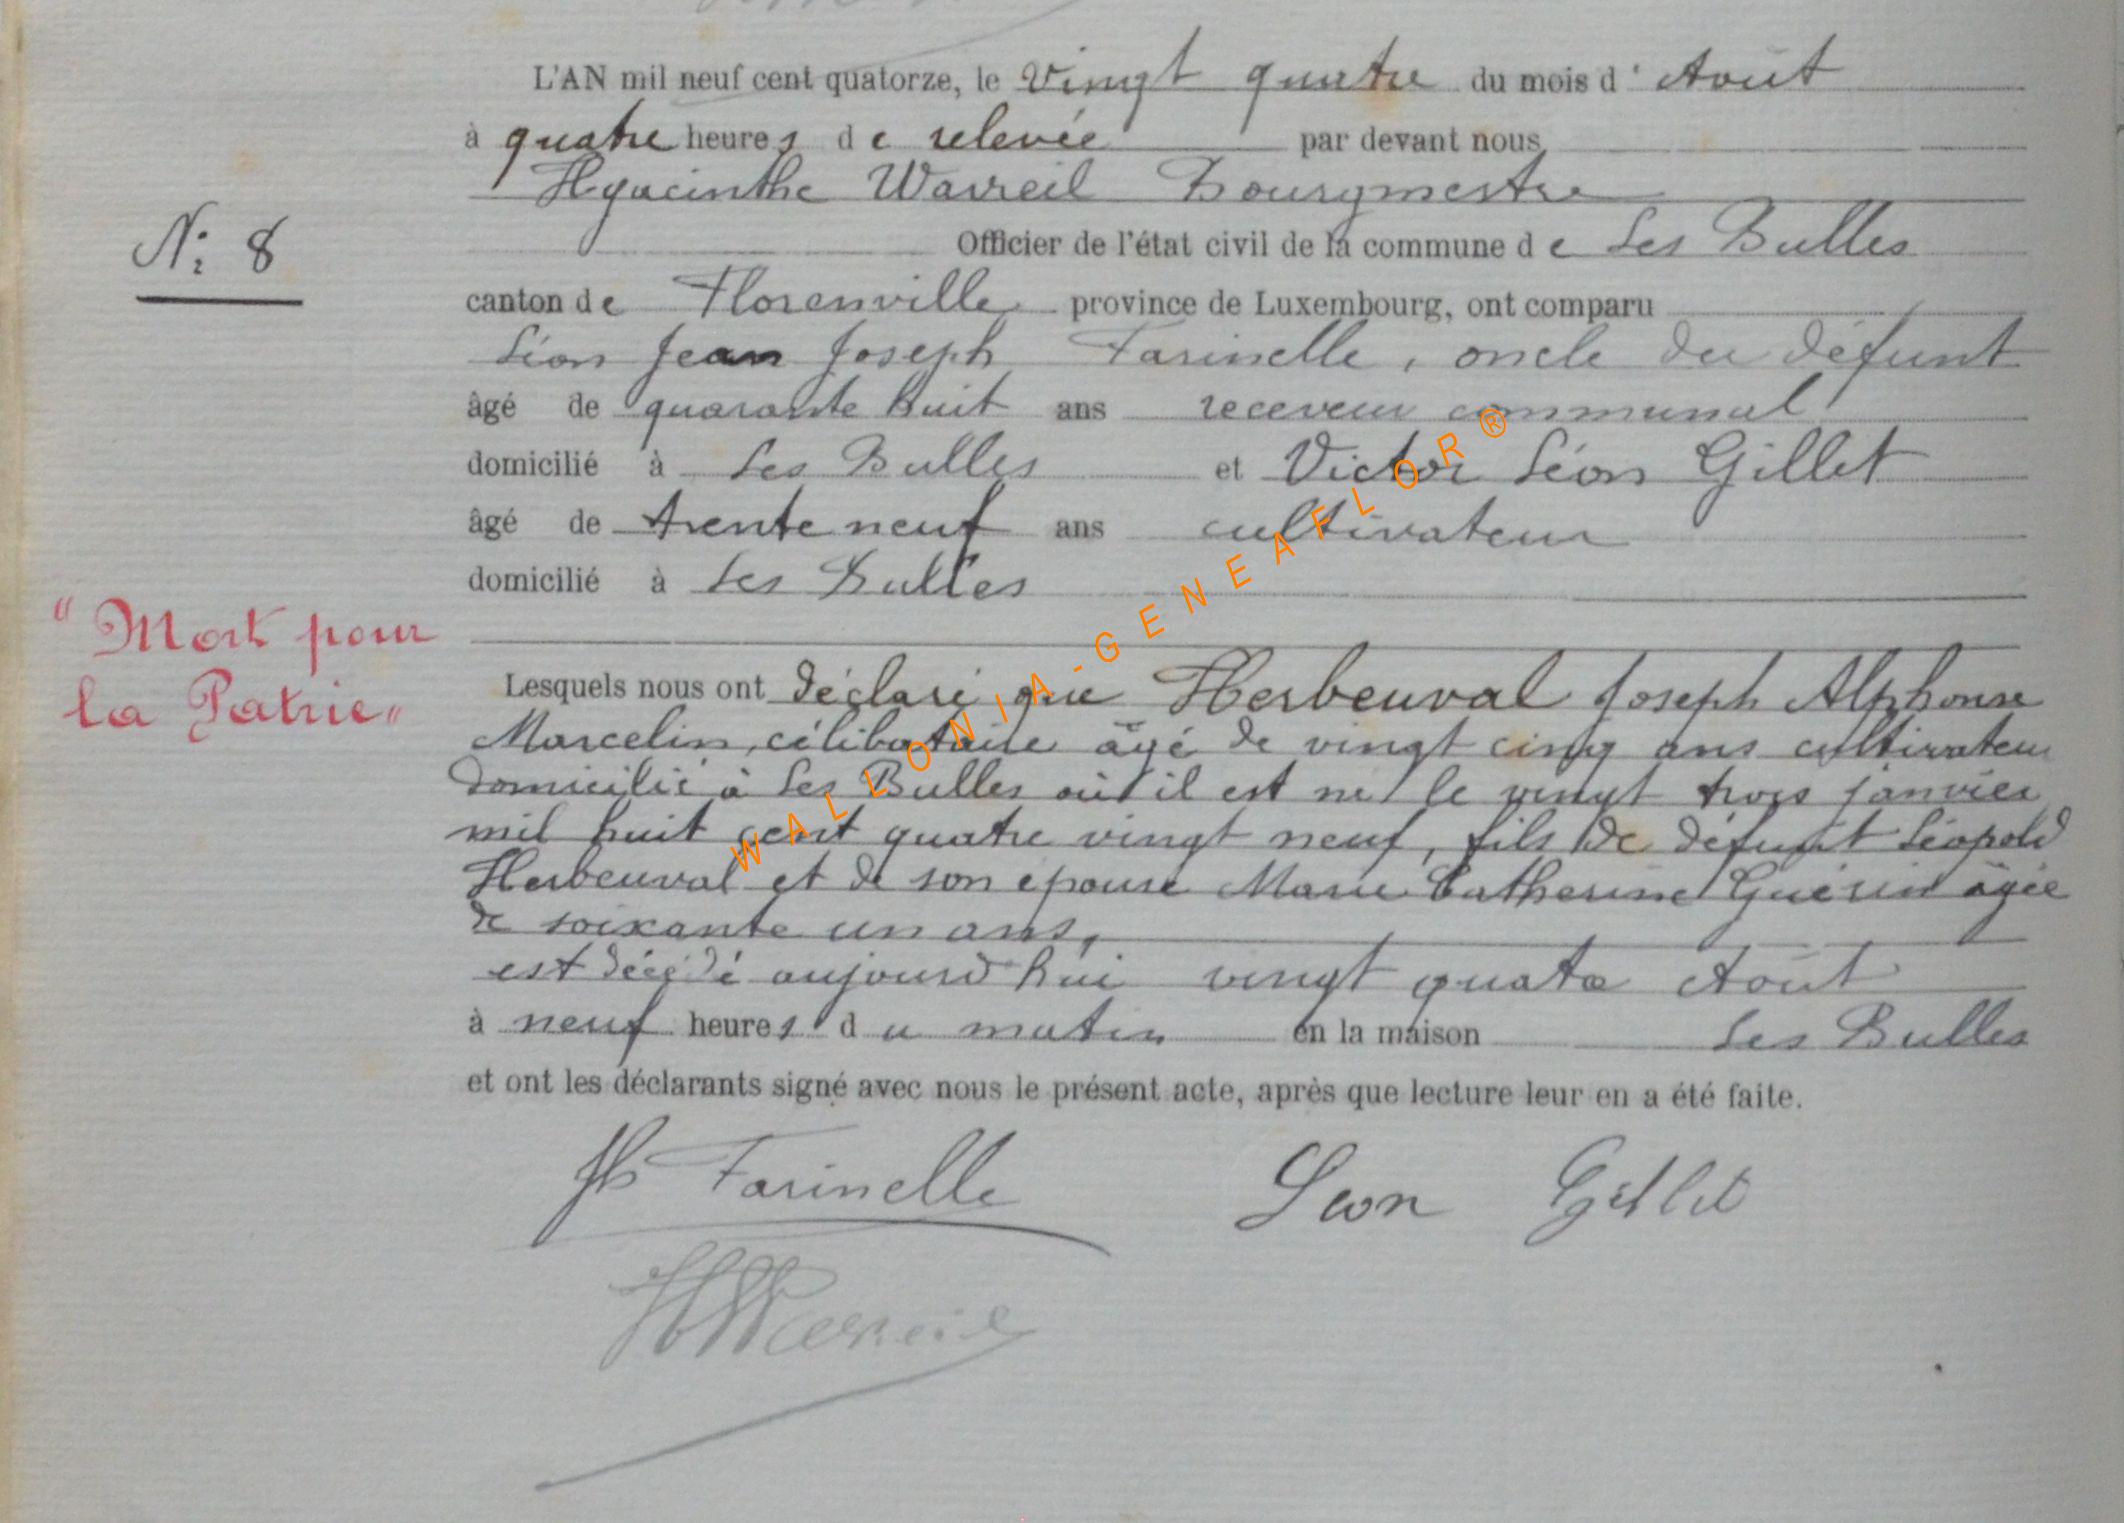 L'AN mil neuf cent quatorze, le Vingt quatre du mois d' Août
à quatre heures de relevée par devant nous
Hyacinthe Wavreil Bourgmestre
N: 8
Officier de l'état civil de la commune de Les Bulles
canton de Florenville province de Luxembourg, ont comparu
Léon Jean Joseph Farinelle, oncle du défunt
âgé de quarante huit ans receveur communal
domicilié à Les Bulles et Victor Léon Gillet
âgé de trente neuf ans cultivateur
domicilié à Les Bulles
"Mort pour
la Patrie"
Lesquels nous ont déclaré que Herbeuval Joseph Alphonse
Marcelin, célibataire âgé de vingt cinq ans cultivateur
domicilié à Les Bulles où il est né le vingt trois janvier
mil huit cent quatre vingt neuf, fils de défunt Léopold
Herbeuval et de son épouse Marie Catherine Guérin âgée
de soixante un ans,
est décédé aujourd'hui vingt quatre Août
à neuf heures du matin en la maison Les Bulles
et ont les déclarants signé avec nous le présent acte, après que lecture leur en a été faite.
Farinelle Léon Gillet
HWavreil
WALLONIA-GENEAFLOR®